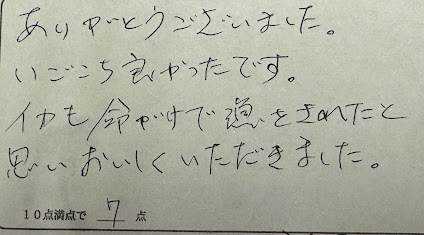 ありがとうございました。
いごこち良かったです。
イカも命がけで漁をされたと
思いおいしくいただきました。
10点満点で 7 点